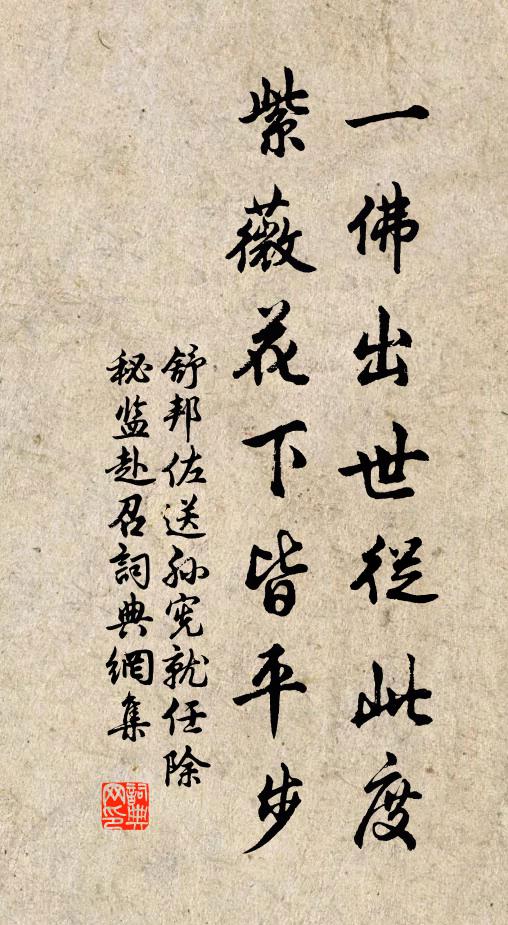 一佛出世從此度
紫薇花下皆平步
舒邦佐送孙宪就任除
秘监赴召詞典網集
詞典网印